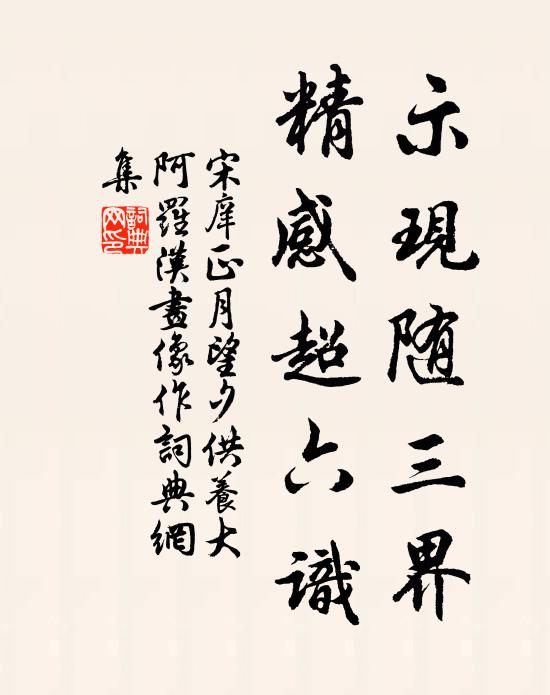 示現随三界
精感超六識
宋庠正月望夕供養大
阿羅漢畫像作詞典網
集
詞典
网印